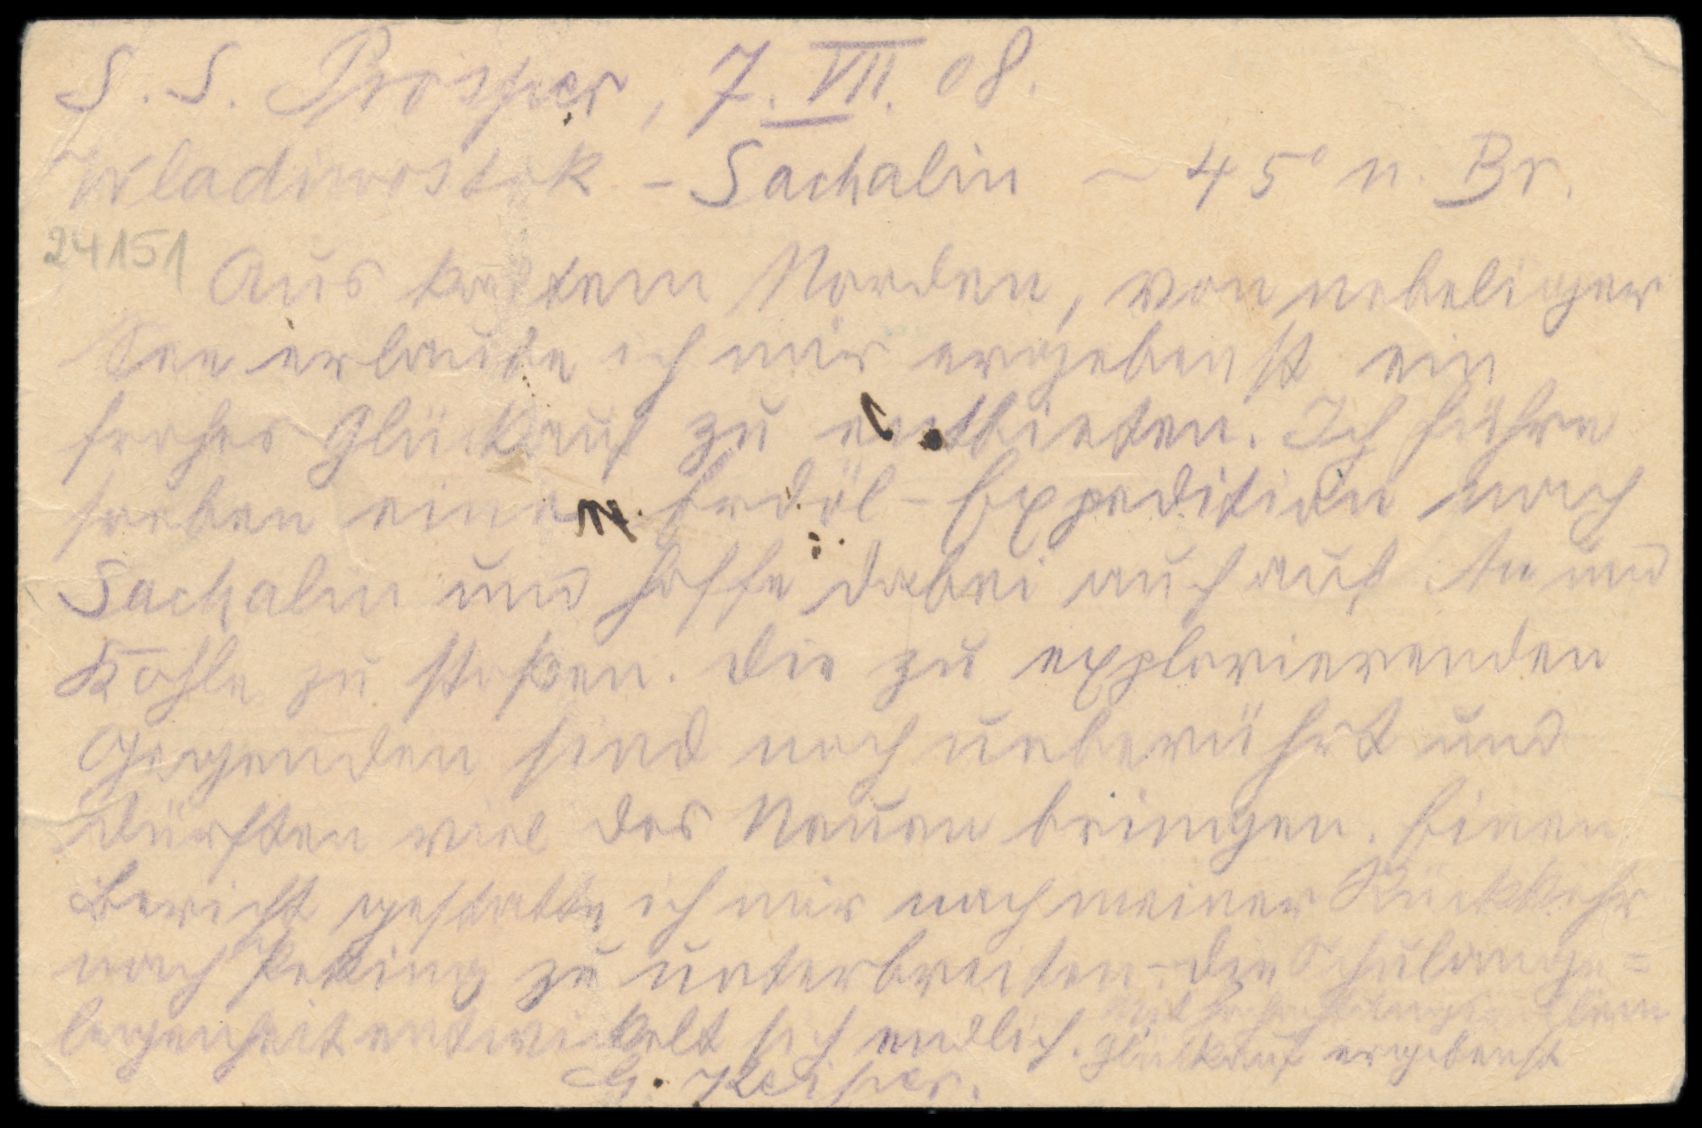 S. S. Prosper, 7. VII. 08.
Wladiwostok - Sachalin ~ 45° n. Br.
24151
Aus kaltem Norden, von nebeliger
See erlaube ich mir ergebenst ein
frohes Glückauf zu entbieten. Ich führe
soeben eine Erdöl-Expedition nach
Sachalin und hoffe dabei auch auf Au und
Kohle zu stoßen. Die zu explorierenden
Gegenden sind noch unberührt und
dürften viel des Neuen bringen. Einen
Bericht gestatte ich mir nach meiner Rückkehr
nach Peking zu unterbreiten. - Die Schulange=
legenheit entwickelt sich endlich. Mit
Glückauf ergebenst